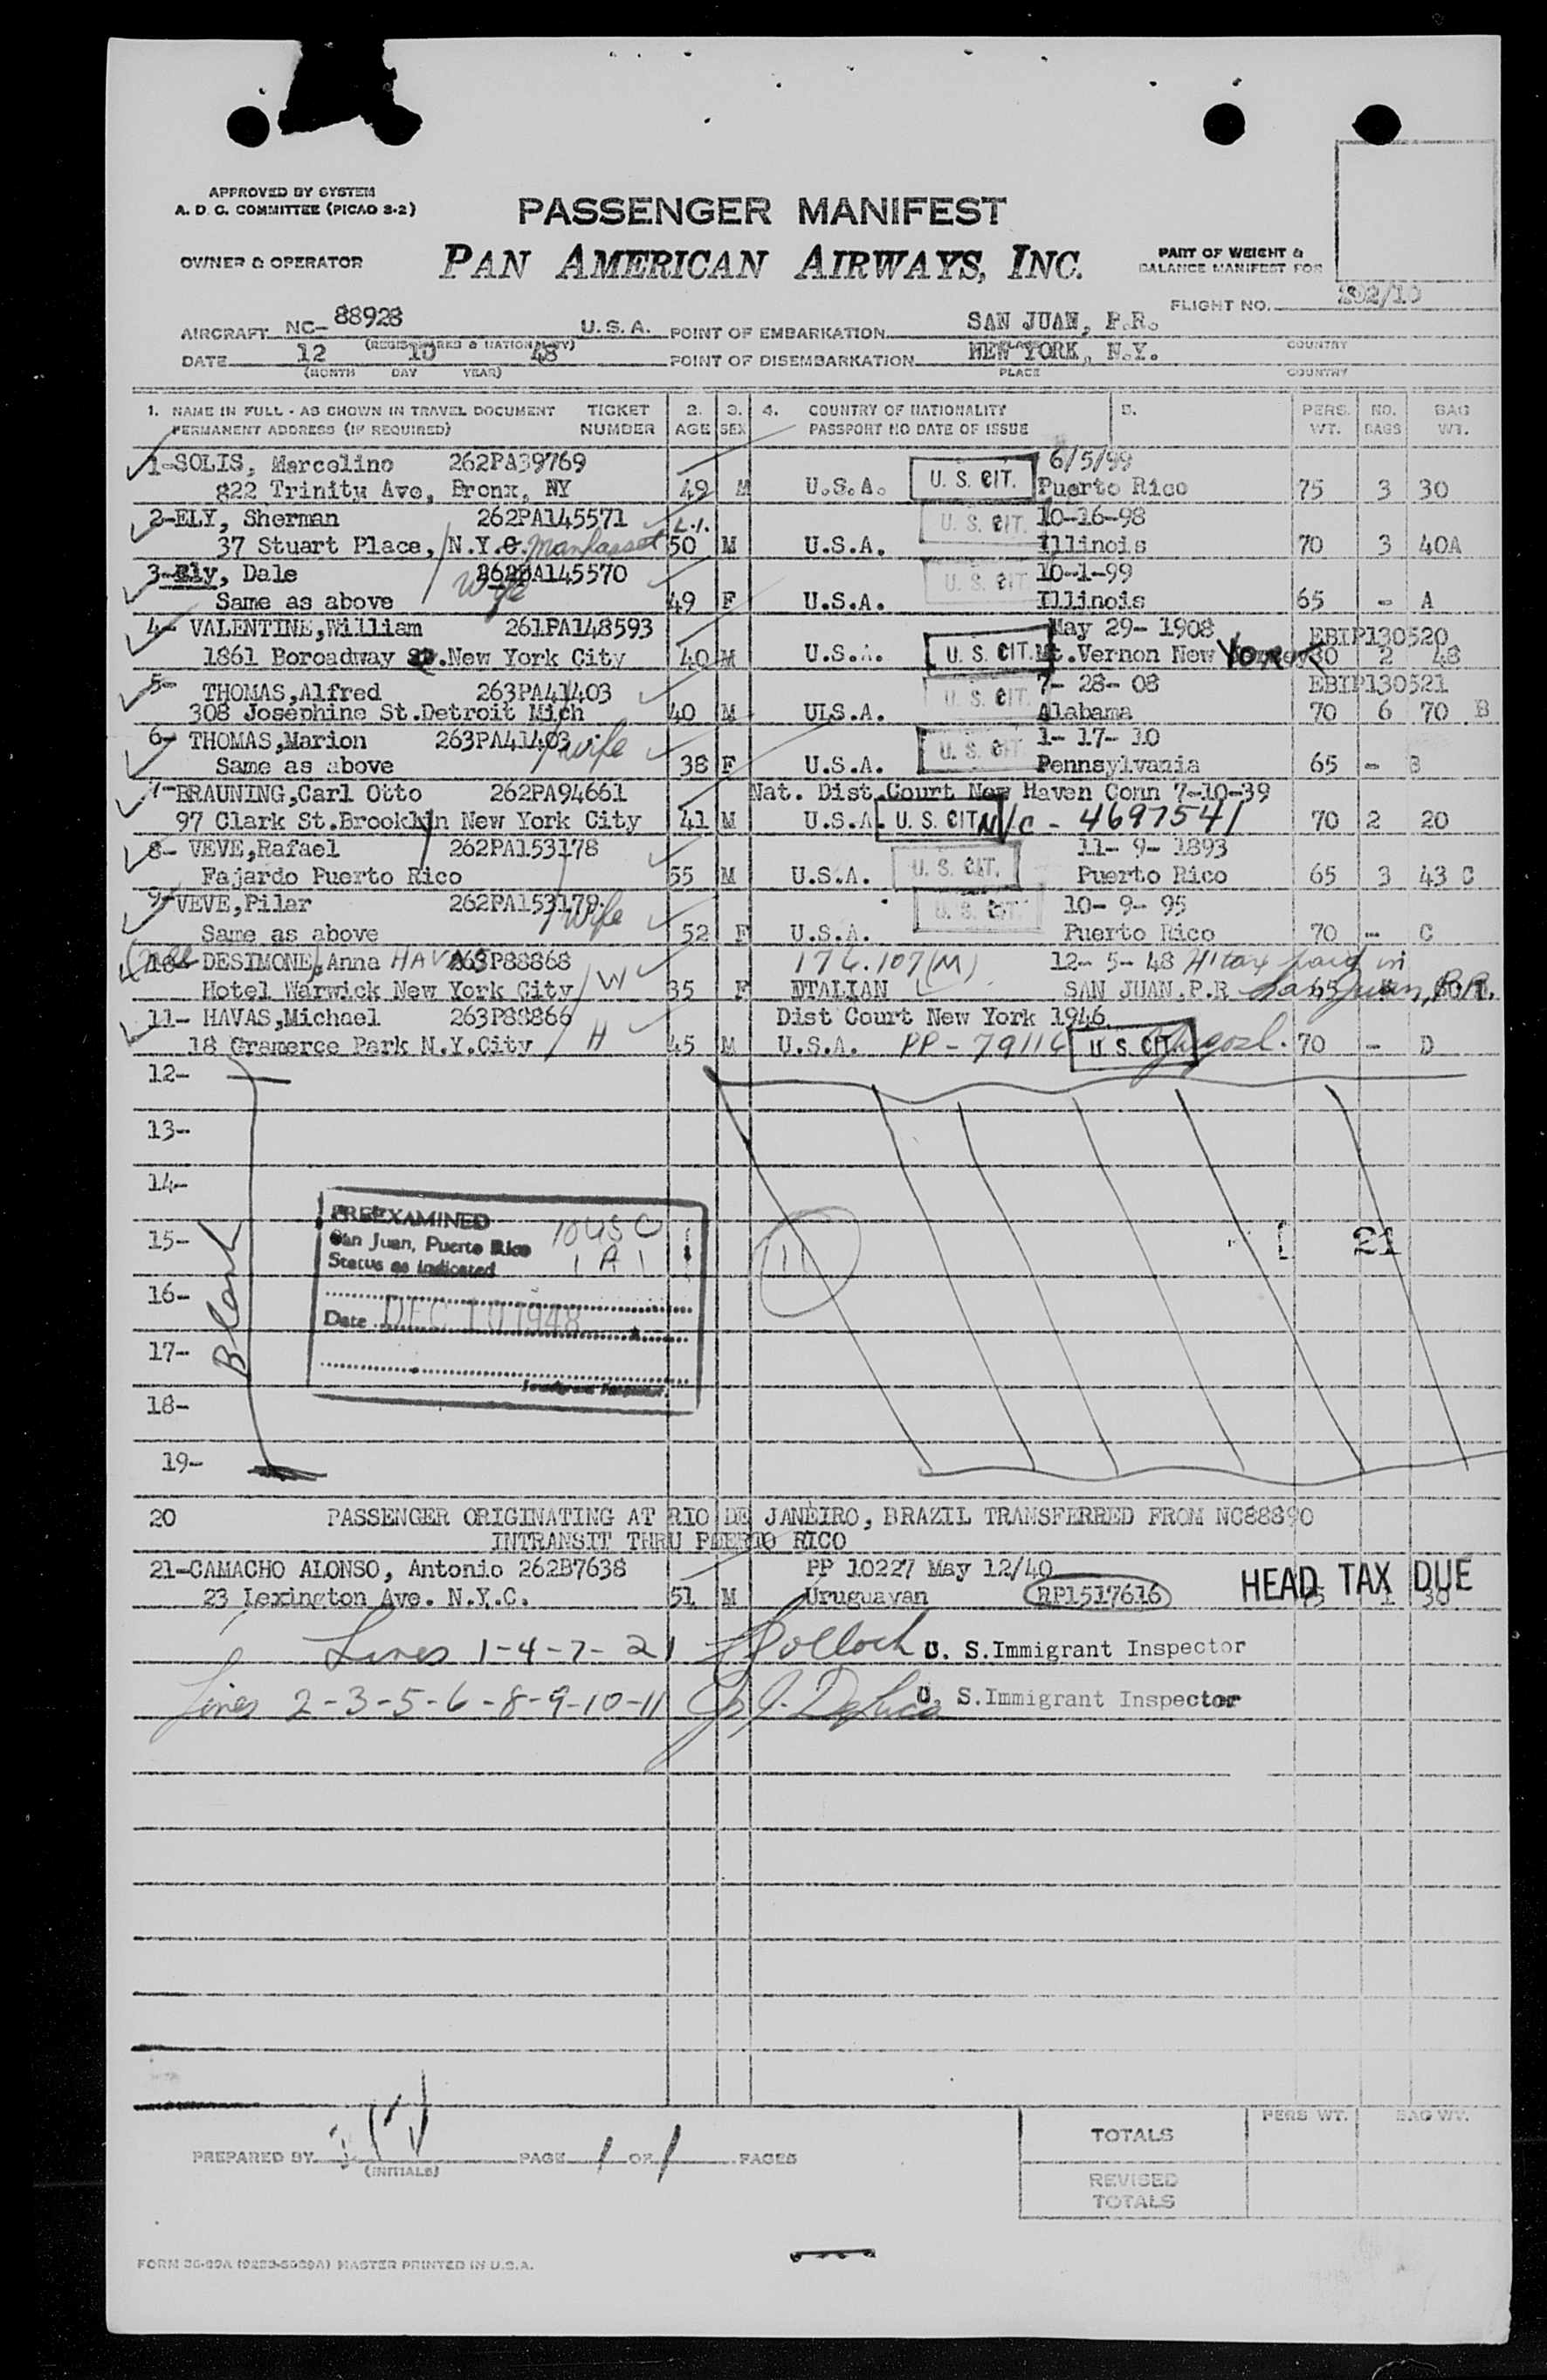 APPROVED BY SYSTEM
A. D. C. COMMITTEE (PICAO S-2)
PASSENGER MANIFEST
OWNER & OPERATOR
PAN AMERICAN AIRWAYS, INC.
PART OF WEIGHT &
BALANCE MANIFEST FOR
FLIGHT NO. 202/10
AIRCRAFT NC- 88928 U. S. A. POINT OF EMBARKATION SAN JUAN, P.R.
(REGIS. MARKS & NATIONALITY) PLACE COUNTRY
DATE 12 10 48 POINT OF DISEMBARKATION NEW YORK, N.Y.
(MONTH DAY YEAR) PLACE COUNTRY
1. NAME IN FULL - AS SHOWN IN TRAVEL DOCUMENT TICKET 2. 3. 4. COUNTRY OF NATIONALITY 5. PERS. NO. BAG
PERMANENT ADDRESS (IF REQUIRED) NUMBER AGE SEX PASSPORT NO DATE OF ISSUE WT. BAGS WT.
1-SOLIS, Marcelino 262PA39769 6/5/99
822 Trinity Ave, Bronx, NY 49 M U.S.A. U. S. CIT. Puerto Rico 75 3 30
2-ELY, Sherman 262PA145571 L.I. U. S. CIT. 10-16-98
37 Stuart Place, N.Y.C. Manhasset 50 M U.S.A. Illinois 70 3 40A
3-Ely, Dale 262PA145570 U. S. CIT 10-1-99
Same as above Wife 49 F U.S.A. Illinois 65 - A
4- VALENTINE,William 261PA148593 May 29- 1908 EBIP130520
1861 Boroadway .New York City 40 M U.S.A. U. S. CIT. Mt.Vernon New York 80 2 48
5- THOMAS,Alfred 263PA41403 U. S. CIT. 7- 28- 08 EBIP130521
308 Josephine St.Detroit Mich 40 M UlS.A. Alabama 70 6 70 B
6- THOMAS,Marion 263PA41403 wife U. S. CIT 1- 17- 10
Same as above 38 F U.S.A. Pennsylvania 65 - B
7-BRAUNING,Carl Otto 262PA94661 Nat. Dist Court New Haven Conn 7-10-39
97 Clark St.Brooklyn New York City 41 M U.S.A. U. S. CIT N/C - 4697541 70 2 20
8- VEVE,Rafael 262PA153178 U. S. CIT. 11- 9- 1893
Fajardo Puerto Rico 55 M U.S.A. Puerto Rico 65 3 43 C
9- VEVE,Pilar 262PA153179 Wife U. S. CIT. 10- 9- 95
Same as above 52 F U.S.A. Puerto Rico 70 - C
10- DESIMONE,Anna HAVAS 263P88868 176.107(M) 12- 5- 48 H'tax paid in
Hotel Warwick New York City W 35 F NTALIAN SAN JUAN,P.R San Juan, P.R.
11- HAVAS,Michael 263P88866 Dist Court New York 1946
18 Gramerce Park N.Y.City H 45 M U.S.A. PP - 79116 U. S. CIT Jugosl. 70 - D
12-
13-
14-
15-
16-
17-
18-
19-
Blank
PREEXAMINED 10 USC
San Juan, Puerto Rico
Status as Indicated 1 A 1
Date DEC 10 1948
Immigrant Inspector
11
21
20 PASSENGER ORIGINATING AT RIO DE JANEIRO, BRAZIL TRANSFERRED FROM NC88890
INTRANSIT THRU PUERTO RICO
21-CAMACHO ALONSO, Antonio 262B7638 PP 10227 May 12/40
23 Lexington Ave. N.Y.C. 51 M Uruguayan RP1517616 HEAD TAX DUE 75 1 30
Lines 1-4-7-21 Pollock U. S.Immigrant Inspector
Lines 2-3-5-6-8-9-10-11 J. DeLuca U. S.Immigrant Inspector
PREPARED BY PAGE 1 OF 1 PAGES
(INITIALS)
TOTALS PERS WT. BAG WT.
REVISED
TOTALS
MASTER PRINTED IN U.S.A.